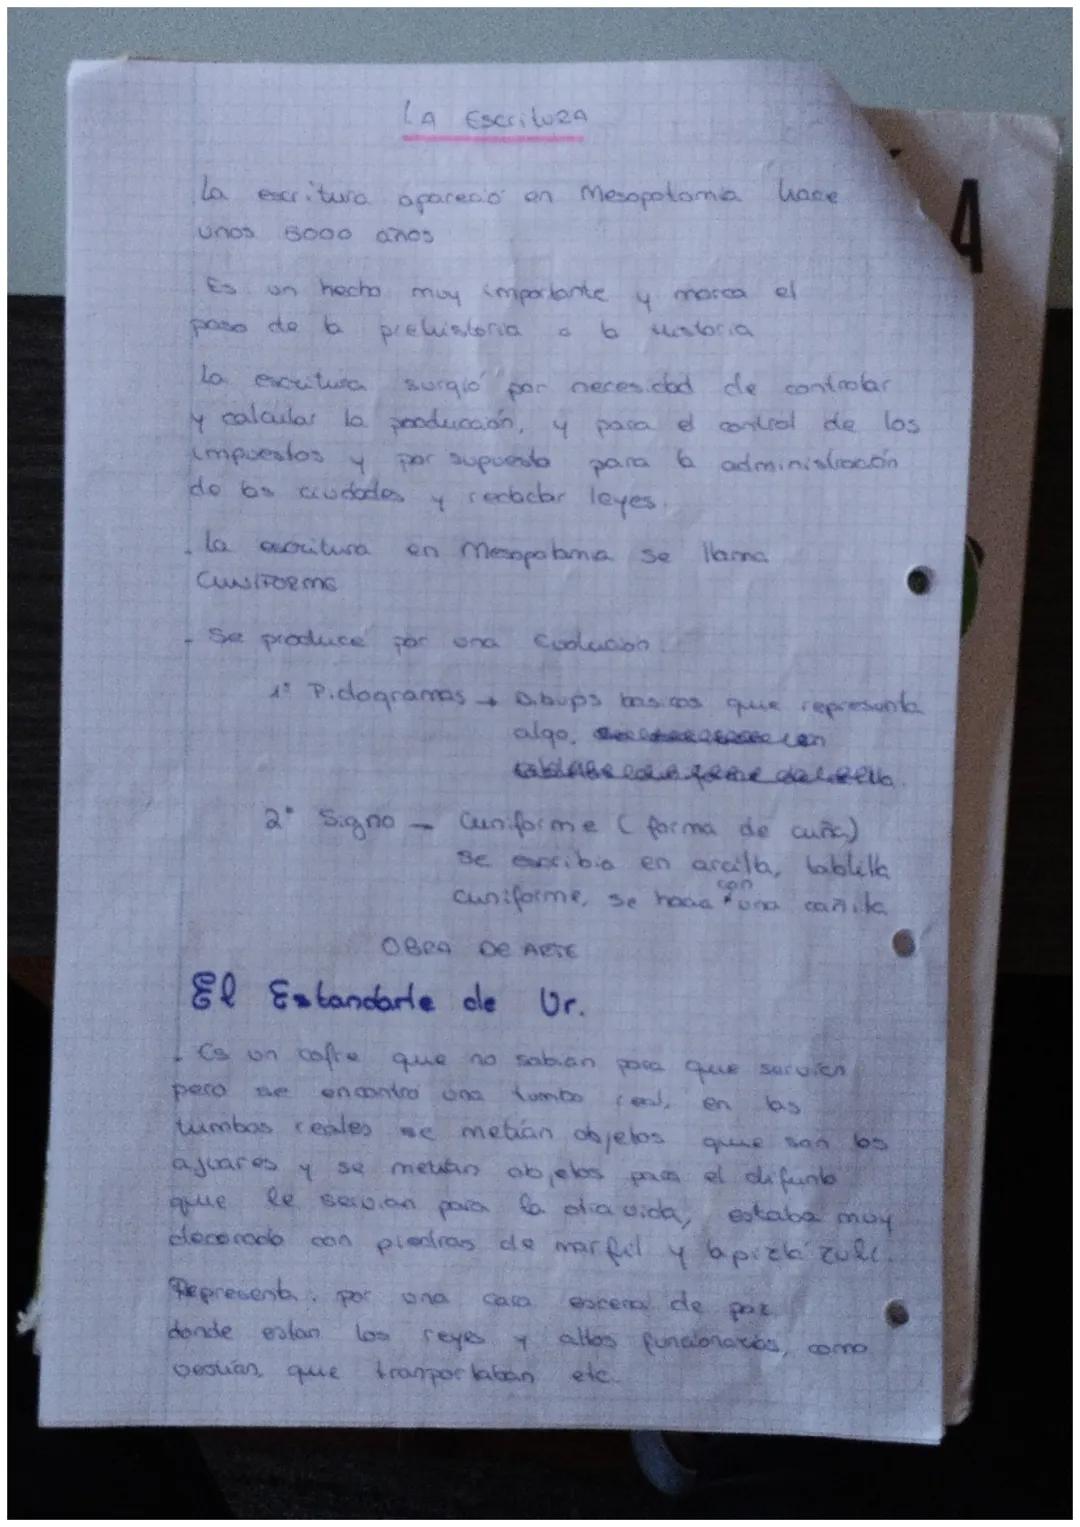 LA EscrituRA
La escritura apareció en Mesopotamia hace
unos 5000 años
Es un hecho muy importante y marca el
paso de la prehistoria a la historia
La escritura surgió por necesidad de controlar
y calcular la producción, y para el control de los
impuestos y por supuesto para la administración
de las ciudades y redactar leyes.
- La escritura en Mesopotamia se llama
CUNIFORME
- Se produce por una Evolución.
1º Pictogramas → Dibujos basicos que representa
algo.
2º Signo - Cuniforme (forma de cuña)
se escribia en arcilla, tablilla
cuniforme, se hacia con una cañita
OBRA DE ARTE
El Estandarte de Ur.
- Es un cofre que no sabian para que servien
pero se encontro una tumba real, en las
tumbas reales se metián objetos que son los
ajuares y se metián objetos para el difunto
que le servian para la otra vida, estaba muy
decorado con piedras de marfil y lapizlá zuli.
Representa. por una cara escena de paz
donde estan los reyes y altos funcionarios, como
vestian, que tranportaban etc.
A